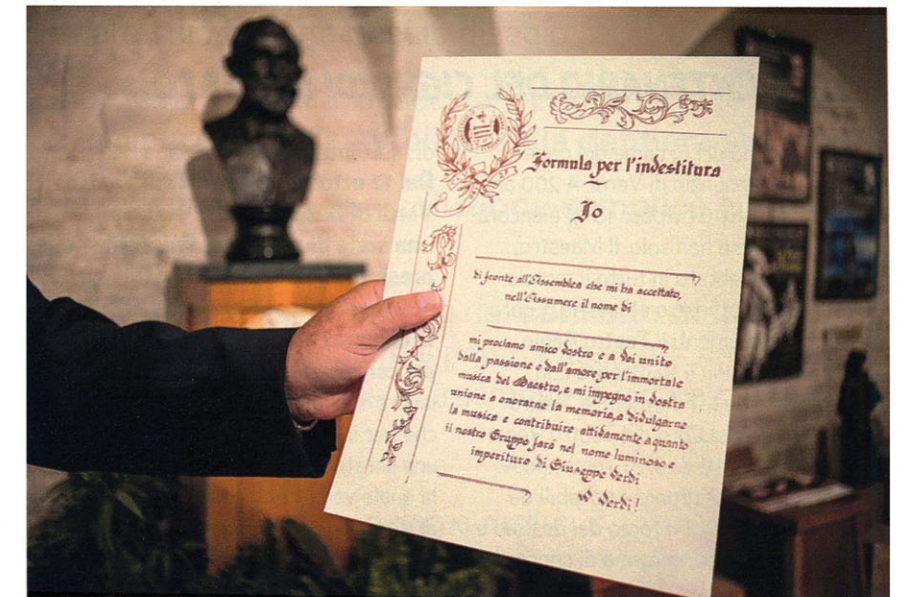 Formula per l'investitura
Io
di fronte all'Assemblea che mi ha accettato,
nell'Assumere il nome di
mi proclamo amico vostro e a voi unito
dalla passione e dall'amore per l'immortale
musica del Maestro, e mi impegno in vostra
unione a onorarne la memoria, a divulgarne
la musica e contribuire attivamente a quanto
il nostro Gruppo farà nel nome luminoso e
imperituro di Giuseppe Verdi
W Verdi!